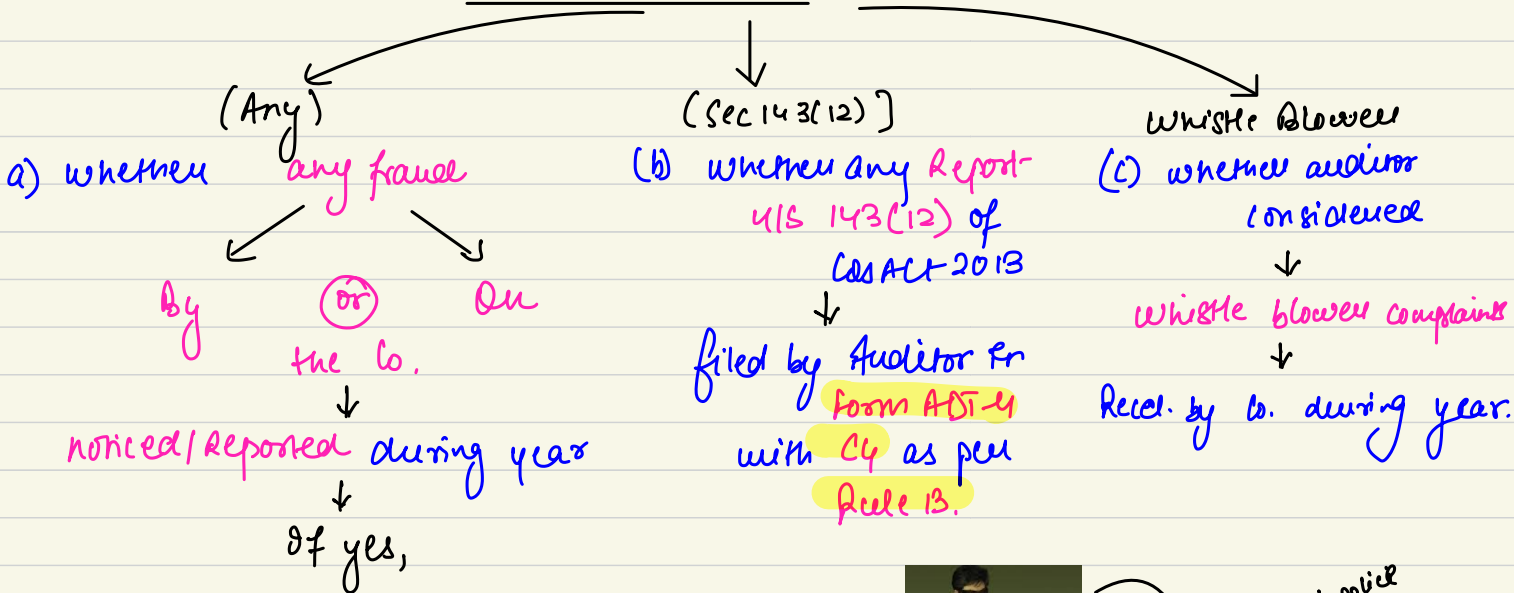 (Any)
a) whether any fraud
By or On
the Co.
noticed/Reported during year
If yes,
(Sec 143(12)]
(b) whether any Report
u/s 143(12) of
Cos Act 2013
filed by Auditor in
Form ADT-4
with CG as per
Rule 13.
Whistle Blower
(c) whether auditor
considered
whistle blower complaints
Recd. by Co. during year.